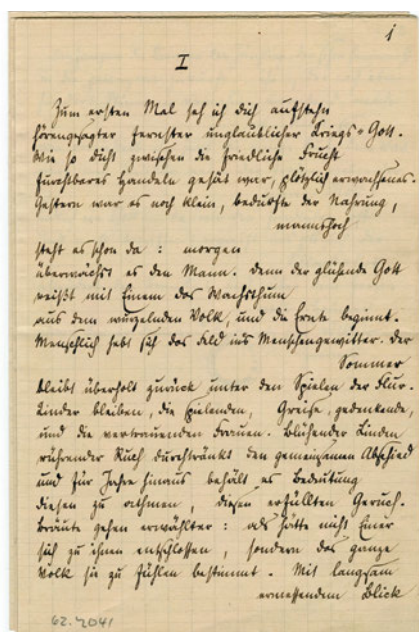 1
I
Zum ersten Mal seh ich dich aufstehn
hörengesagter fernster unglaublicher Kriegs-Gott.
Wie so dicht zwischen die friedliche Frucht
furchtbares Handeln gesät war, plötzlich erwachsenes.
Gestern war es noch klein, bedurfte der Nahrung,
mannshoch
steht es schon da: morgen
überwächst es den Mann. Denn der glühende Gott
reißt mit Einem das Wachsthum
aus dem wurzelnden Volk, und die Ernte beginnt.
Menschlich hebt sich das Feld ins Menschengewitter. Der
Sommer
bleibt überholt zurück unter den Spielen der Flur.
Kinder bleiben, die spielenden, Greise, gedenkende,
und die vertrauenden Frauen. Blühender Linden
rührender Ruch durchtränkt den gemeinsamen Abschied
und für Jahre hinaus behält es Bedeutung
diesen zu athmen, diesen erfüllten Geruch.
Bräute gehen erwählter: als hätte nicht Einer
sich zu ihnen entschlossen, sondern das ganze
Volk sie zu fühlen bestimmt. Mit langsam
ermessendem Blick
62.2041